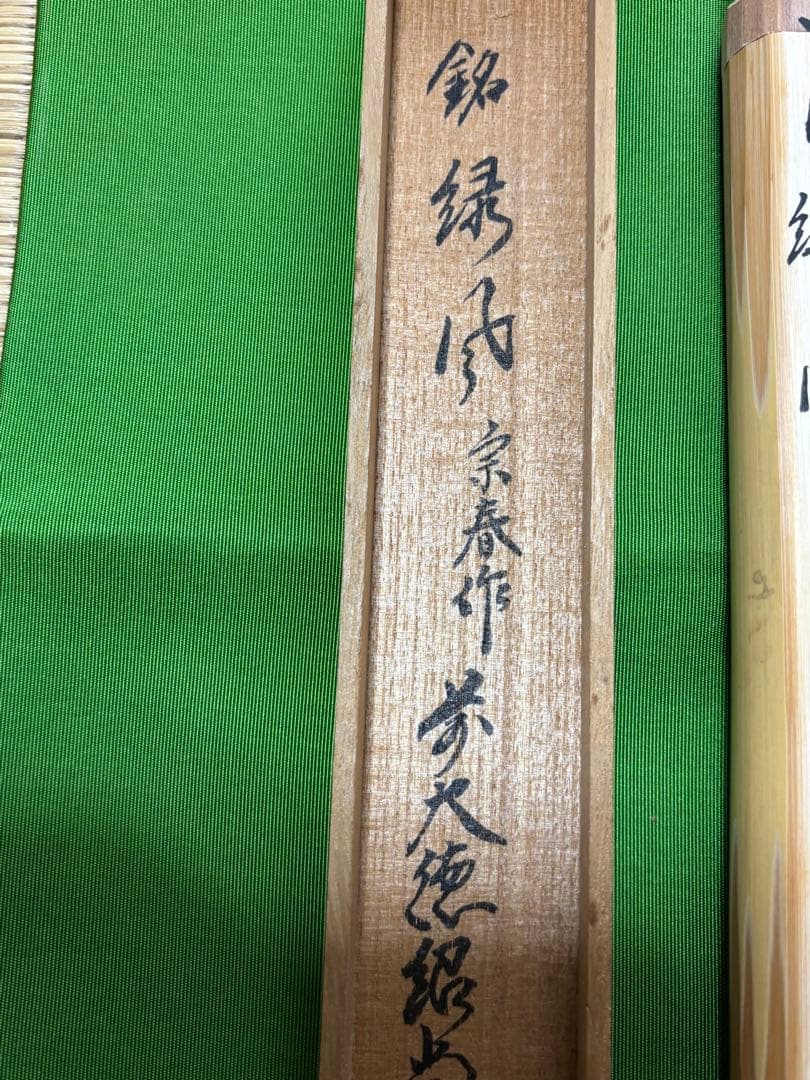 銘 緑風 宗春作 前大徳紹尚
緑